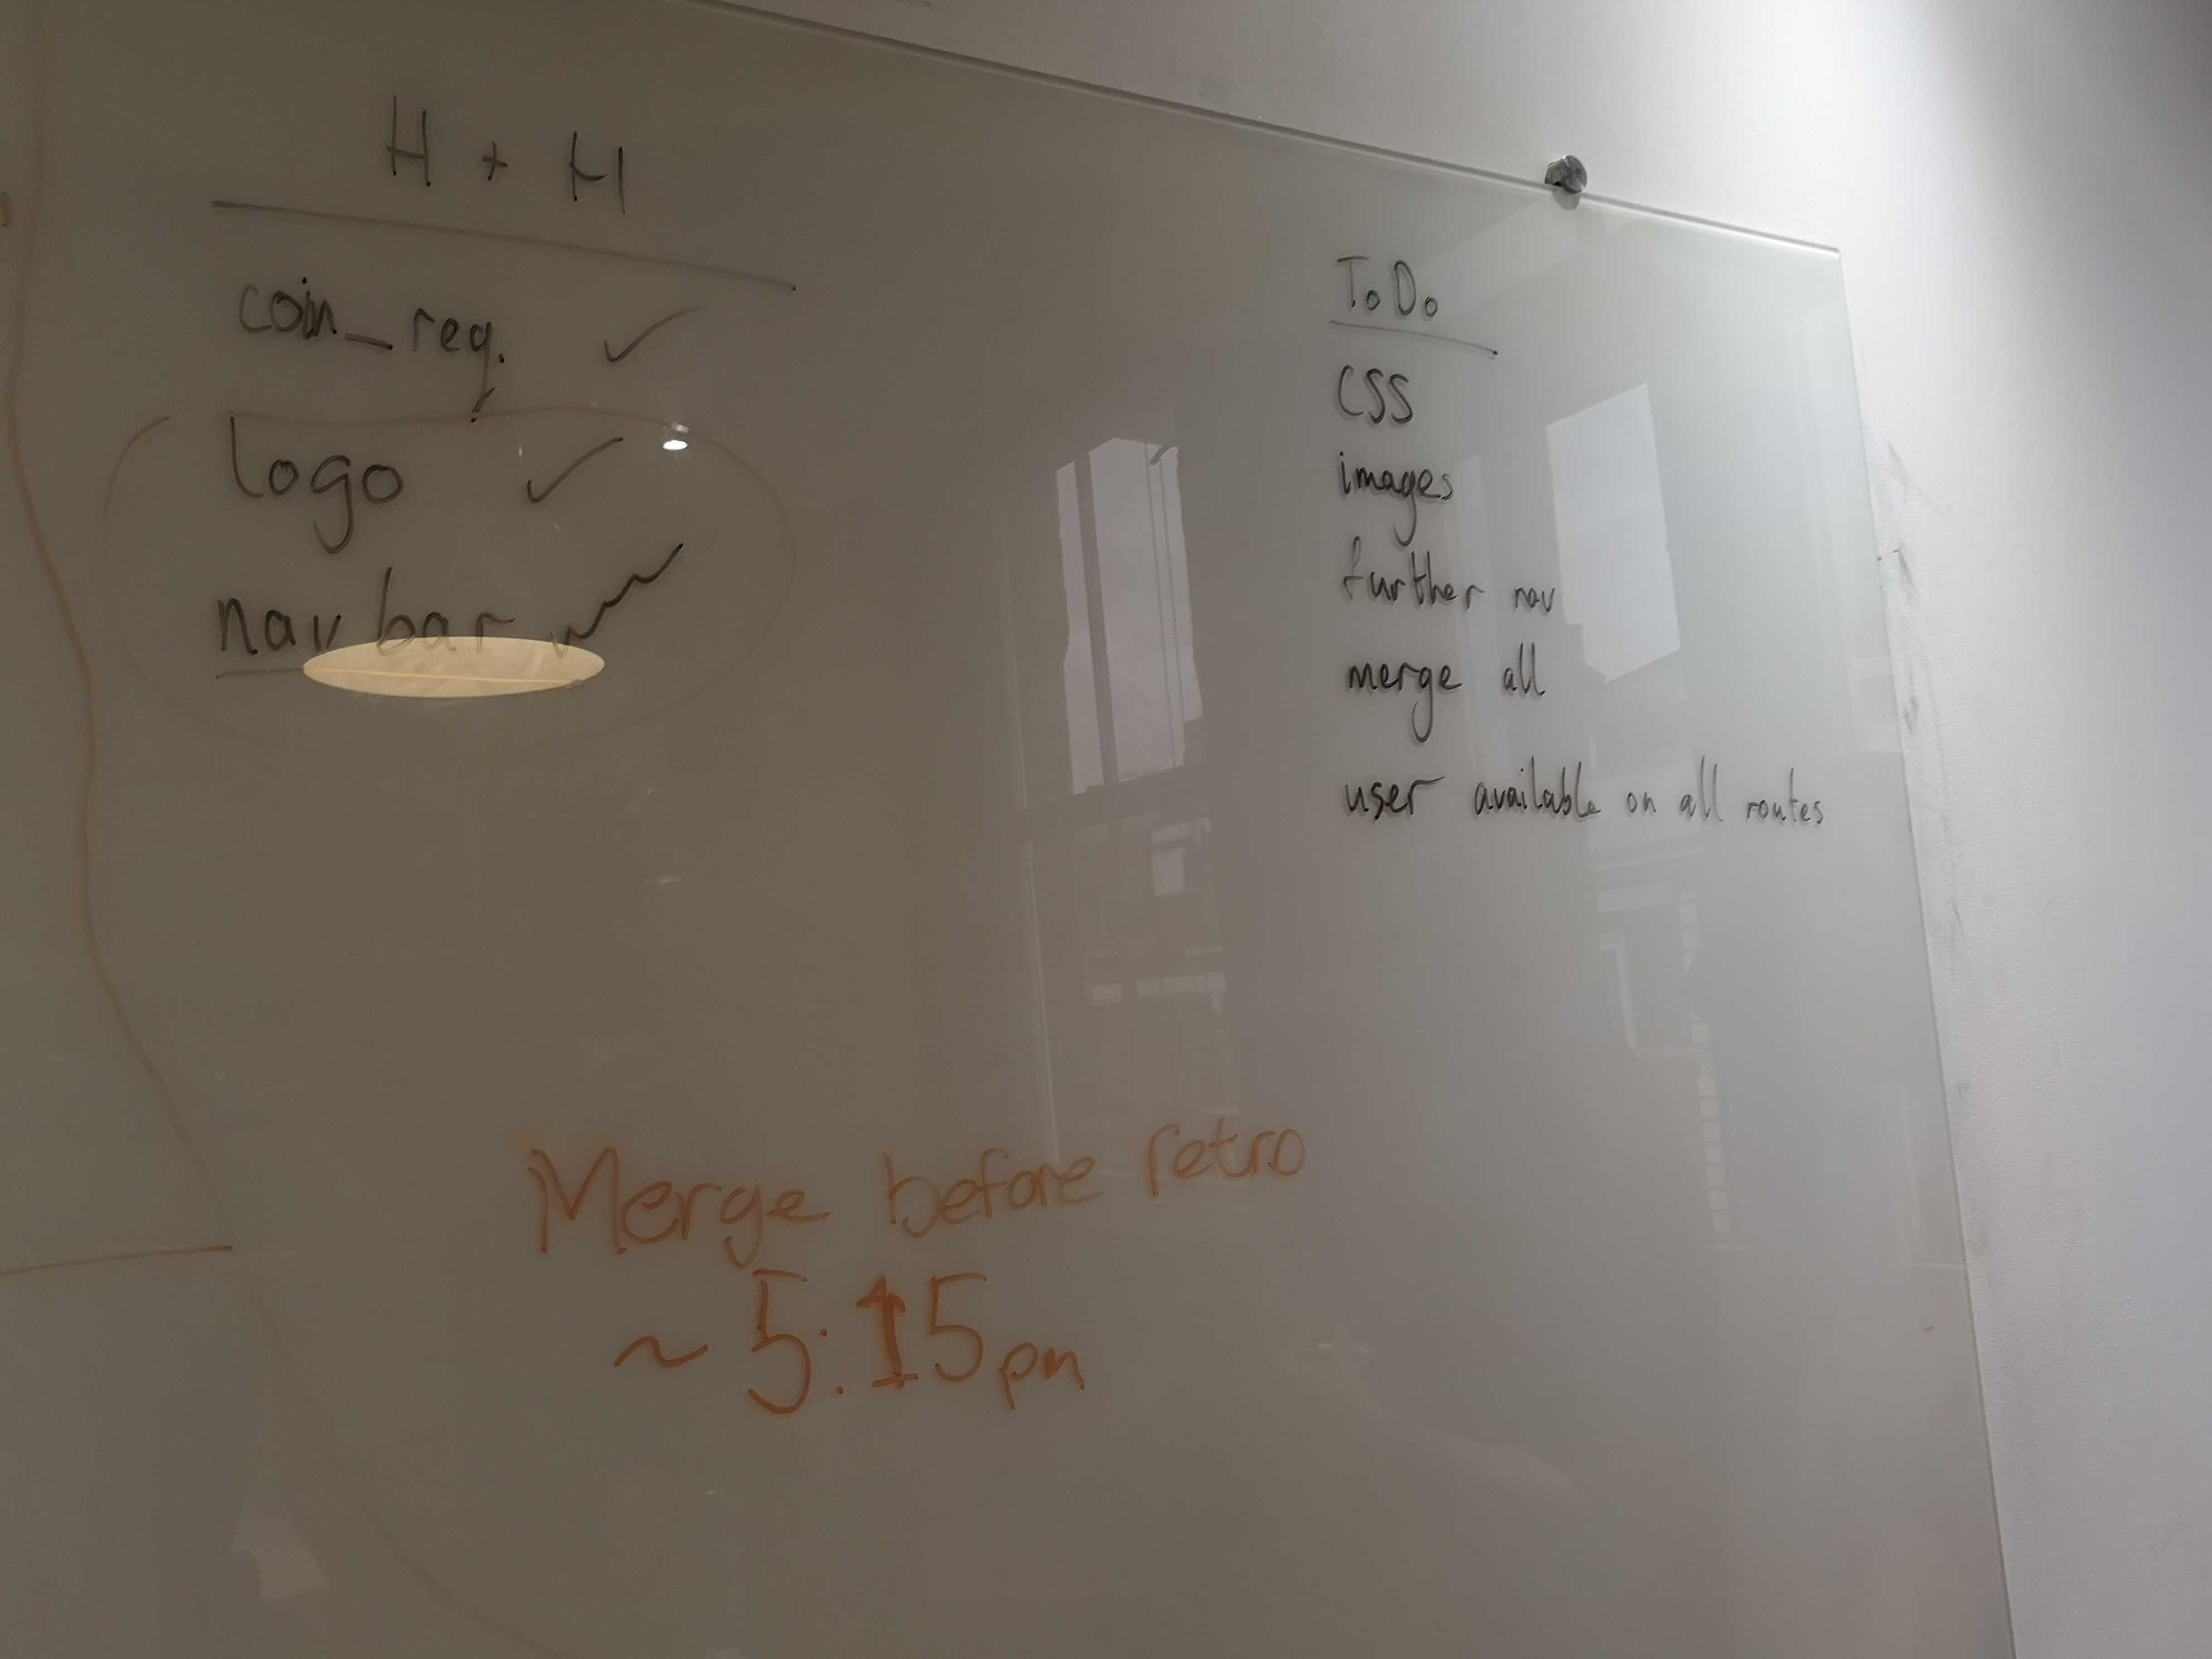 H + H
coin_req. ✓
logo ✓
nav bar
ToDo
CSS
images
further nav
merge all
user available on all routes
Merge before retro
~ 5:15pm